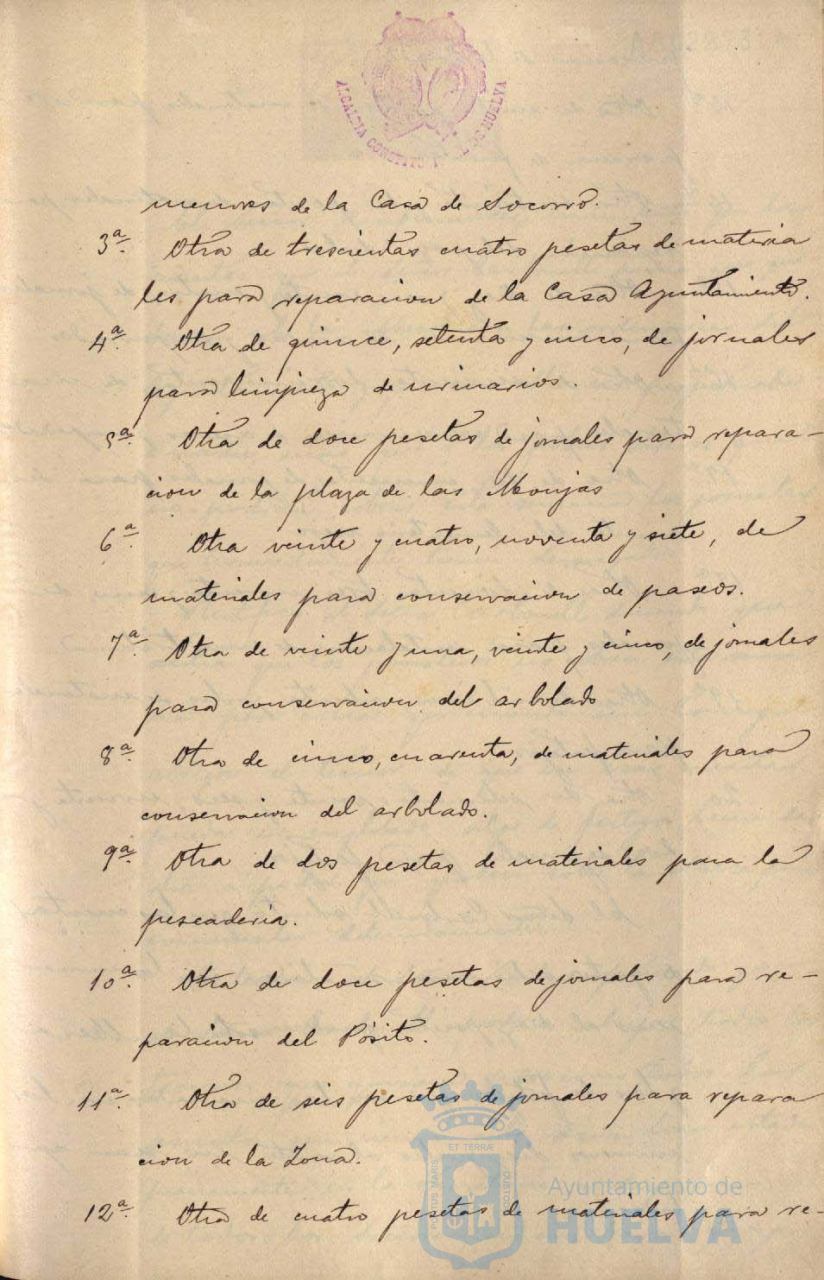 ALCALDIA CONSTITU HUELVA
menores de la Casa de Socorro.
3ª. Otra de trescientas cuatro pesetas de materia
les para reparacion de la Casa Ayuntamiento.
4ª. Otra de quince, setenta y cinco, de jornales
para limpieza de urinarios.
5ª. Otra de doce pesetas de jornales para repara-
cion de la plaza de las Monjas
6ª. Otra veinte y cuatro, noventa y siete, de
materiales para conservacion de paseos.
7ª. Otra de veinte y una, veinte y cinco, de jornales
para conservacion del arbolado
8ª. Otra de cinco, cuarenta, de materiales para
conservacion del arbolado.
9ª. Otra de dos pesetas de materiales para la
pescaderia.
10ª. Otra de doce pesetas de jornales para re-
paracion del Pósito.
11ª. Otra de seis pesetas de jornales para repara
cion de la Zona.
12ª. Otra de cuatro pesetas de materiales para re-
ET TERRÆ
PORTUS MARIS
CUSTODIA
Ayuntamiento de
HUELVA